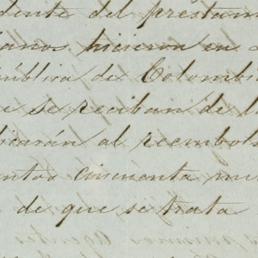 dente del préstam
hicieron en
pública de Colombi
e se reciban de l
icarán al reembols
entos cincuenta mi
de que se trata